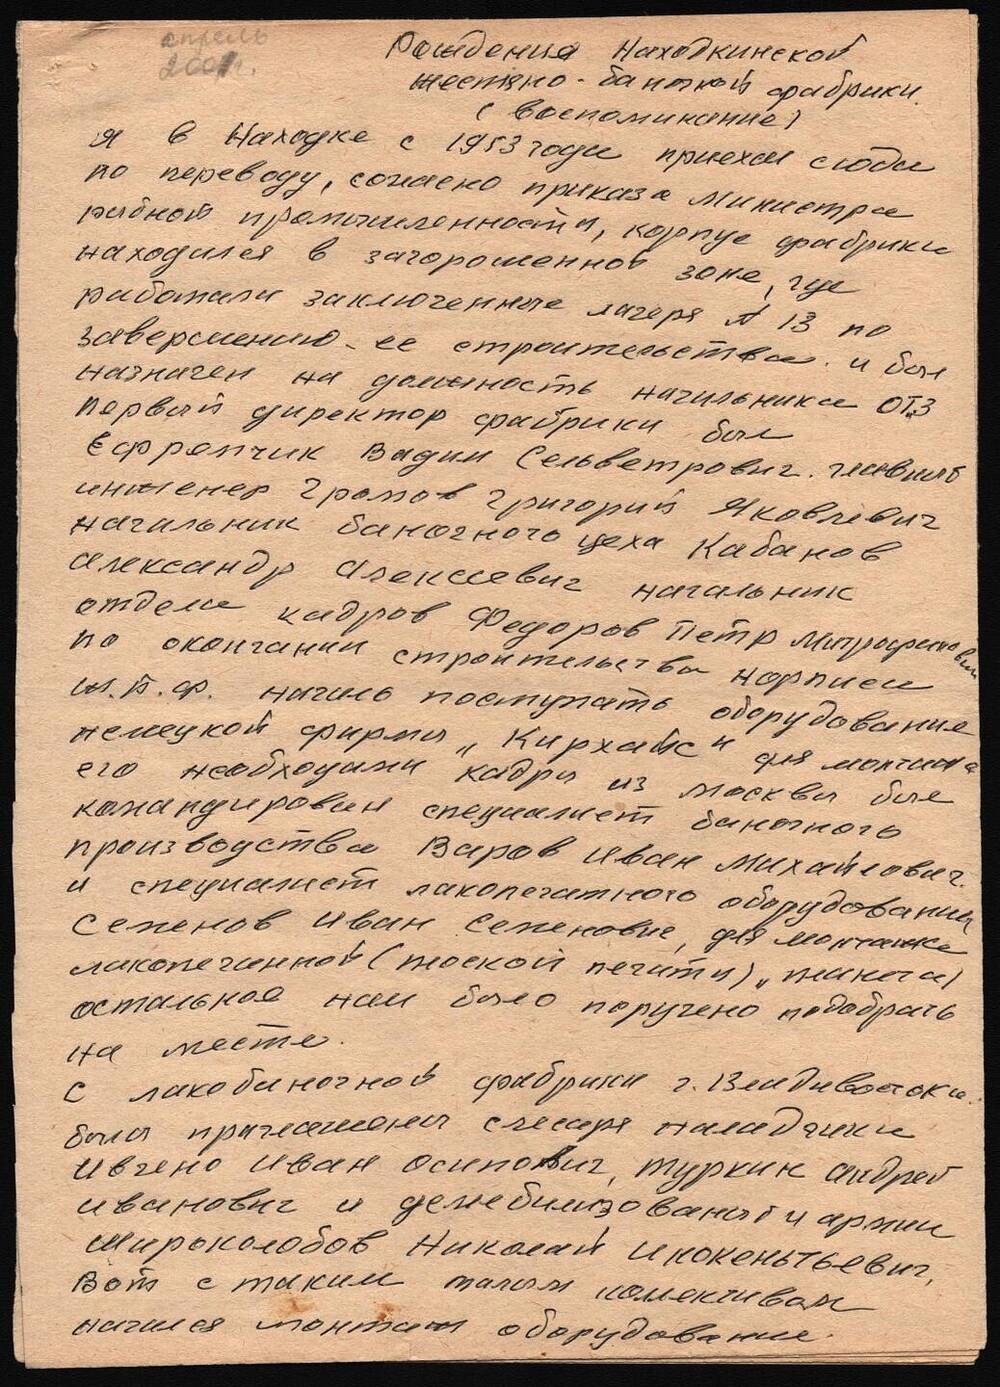 апрель
2001г.
Рождения Находкинской
жестяно-баночной фабрики.
(воспоминание)
Я в Находке с 1953 года приехал сюда
по переводу, согласно приказа Министра
рыбной промышленности, корпус фабрики
находился в загороженной зоне, где
работали заключенные лагеря № 13 по
завершению ее строительства. и был
назначен на должность начальника ОТЗ
Первый директор фабрики был
Ефремчик Вадим Сельветрович. главный
инженер Громов Григорий Яковлевич
начальник баночного цеха Кабанов
Александр Алексеевич начальник
отдела кадров Федоров Петр Митрофанович
по окончании строительства корпуса
ж.б.ф. начало поступать оборудование
немецкой фирмы „Кирхайс" для монтажа
его необходимы кадры из Москвы был
командирован специалист баночного
производства Варов Иван Михайлович.
и специалист лакопечатного оборудования
Семенов Иван Семенович, для монтажа
лакопечатной (плоской печати)
остальное нам было поручено подобрать
на месте.
С лакобаночной фабрики г. Владивостока.
были приглашены слесаря наладчики
Ивчено Иван Осипович, Туркин Андрей
Иванович и демобилизованый и армии
Мироколобов Николай Инокентьевич,
Вот с таким малым коллективом
начался монтаж оборудование.